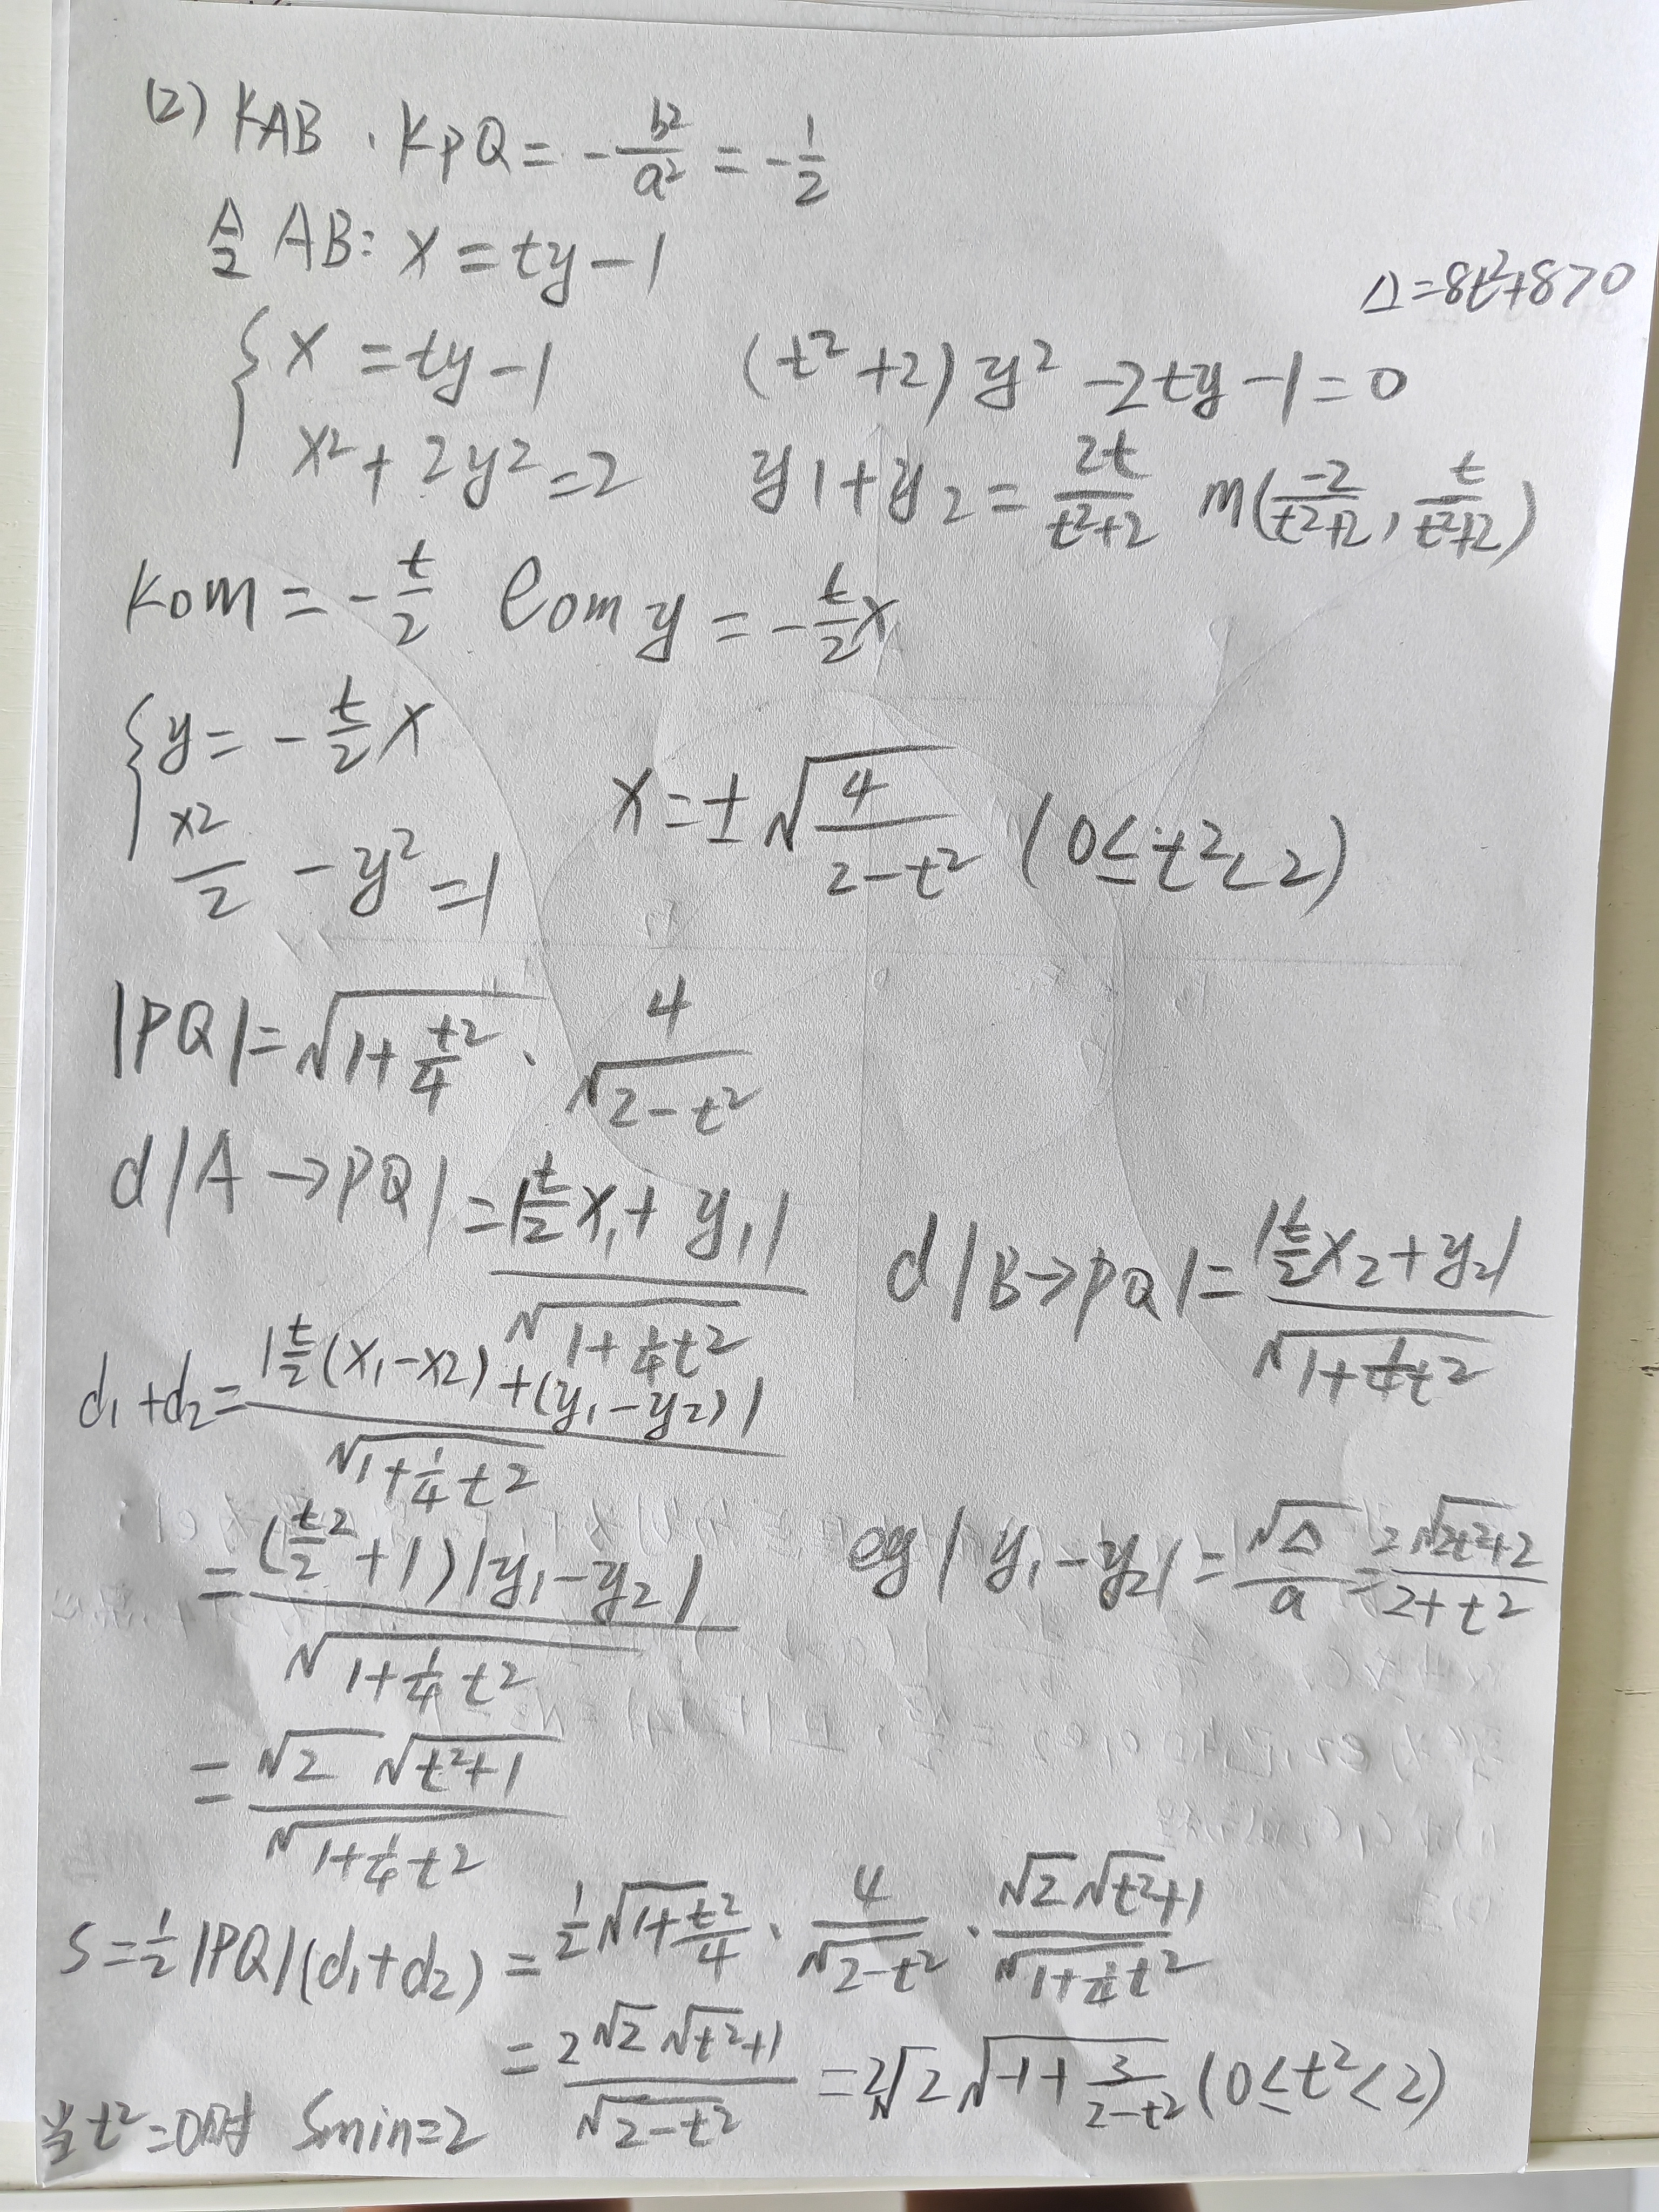 (2) KAB · KPQ = -b²/a² = -1/2
令 AB: x = ty - 1
Δ = 8t²+8 > 0
{ x = ty - 1    (t²+2)y² - 2ty - 1 = 0
x² + 2y² = 2    y1 + y2 = 2t/(t²+2)    m(-2/(t²+2), t/(t²+2))
kom = -t/2    lom y = -t/2 x
{ y = -t/2 x
x²/2 - y² = 1    x = ±√(4/(2-t²)) (0 ≤ t² < 2)
|PQ| = √(1+t²/4) · 4/√(2-t²)
d|A→PQ| = |t/2 x₁ + y₁|/√(1+1/4 t²)    d|B→PQ| = |t/2 x₂ + y₂|/√(1+1/4 t²)
d₁+d₂ = |t/2(x₁-x₂)+(y₁-y₂)|/√(1+1/4 t²)
= (t²/2+1)|y₁-y₂|/√(1+1/4 t²)    |y₁-y₂| = √Δ/a = 2√(2t²+2)/(2+t²)
= √2 √(t²+1)/√(1+1/4 t²)
S = 1/2|PQ|(d₁+d₂) = 1/2 √(1+t²/4) · 4/√(2-t²) · √2√(t²+1)/√(1+1/4 t²)
= 2√2√(t²+1)/√(2-t²) = 2√2√(-1+3/(2-t²)) (0 ≤ t² < 2)
当 t²=0时 Smin=2